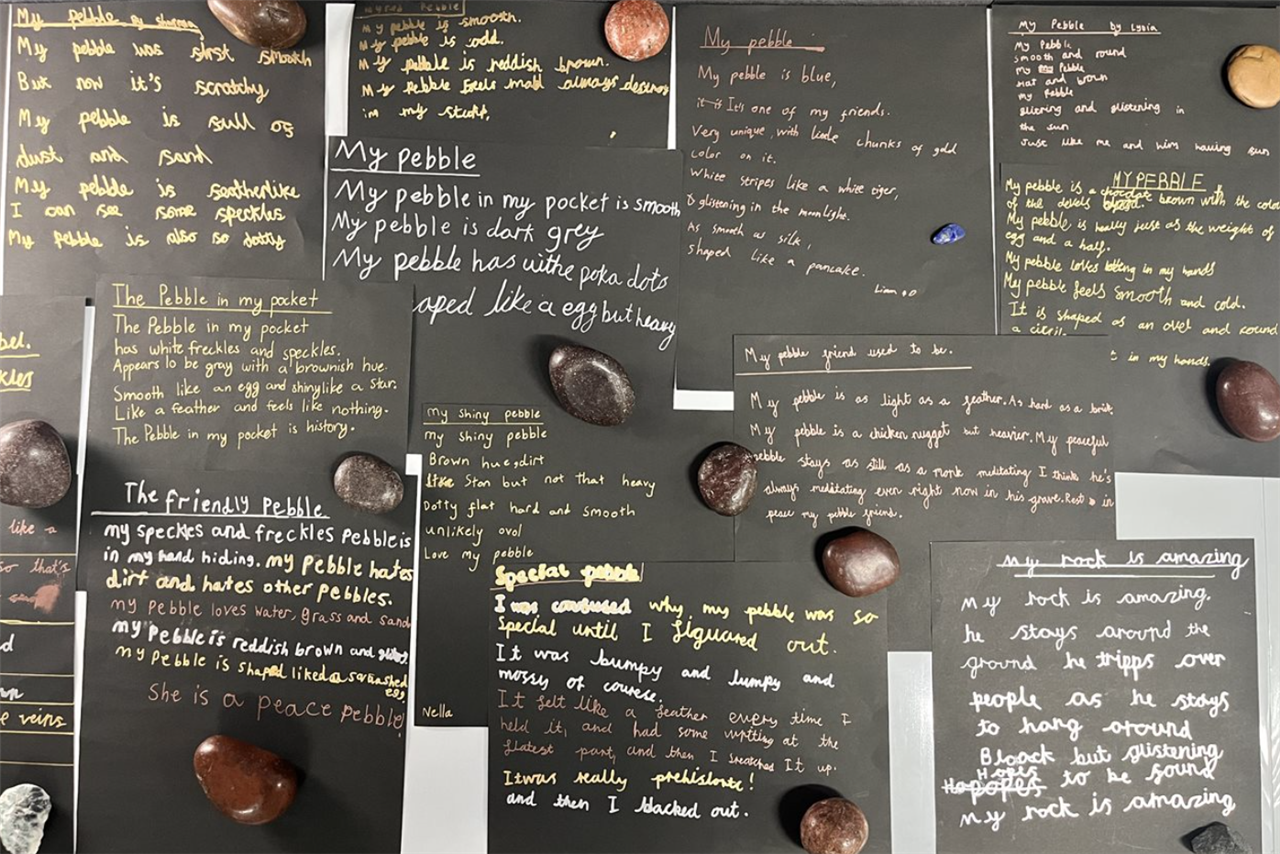 My pebble By
My pebble was first smooth
But now it's scratchy
My pebble is full of
dust and sand
My pebble is featherlike
I can see some speckles
My pebble is also so dotty
My pebble is smooth.
My pebble is odd.
My pebble is reddish brown.
My pebble feels mad always
in my
My pebble
My pebble in my pocket is smooth
My pebble is dark grey
My pebble has withe poka dots
aped like a egg but heavy
My pebble
My pebble is blue,
it is It's one of my friends.
Very unique, with little chunks of gold
color on it.
White stripes like a white tiger,
glistening in the moonlight.
As smooth as silk,
shaped like a pancake.
Liam
My Pebble by Lydia
My Pebble
smooth and round
my my Pebble
flat and brown
my Pebble
glittering and glistening in
the sun
Just like me and him having fun
MY PEBBLE
My pebble is a brown with the color
of the devils
My pebble is really just as the weight of
egg and a half.
My pebble loves being in my hands
My pebble feels smooth and cold.
It is shaped as an ovel and round
a
t in my hands.
The Pebble in my pocket
The Pebble in my pocket
has white freckles and speckles.
Appears to be gray with a brownish hue.
Smooth like an egg and shiny like a star.
Like a feather and feels like nothing.
The Pebble in my pocket is history.
My pebble friend used to be.
My pebble is as light as a feather. As hard as a brick
My pebble is a chicken nugget but heavier. My peaceful
pebble stays as still as a monk meditating I think he's
always meditating even right now in his grave. Rest in
peace my pebble friend.
my shiny pebble
my shiny pebble
Brown hue, dirt
like Stan but not that heavy
Dotty flat hard and smooth
unlikely oval
Love my pebble
Nella
The friendly Pebble
my speckles and freckles Pebble is
in my hand hiding. my Pebble hates
dirt and hates other pebbles.
my Pebble loves water, grass and sand
my Pebble is reddish brown and
my Pebble is shaped like a
egg
She is a peace Pebble!
Special pebble
I was confused why my pebble was so
special until I figuared out.
It was bumpy and lumpy and
mossy of course.
It felt like a feather every time I
held it, and had some writing at the
flatest part, and then I
It up.
It was really prehistoric!
and then I blacked out.
my rock is amazing
my rock is amazing.
he stays around the
ground he tripps over
people as he stays
to hang around
Black but glistening
Hopes to be found
my rock is amazing
bel.
kles
like a
so that's
d
wn
e veins